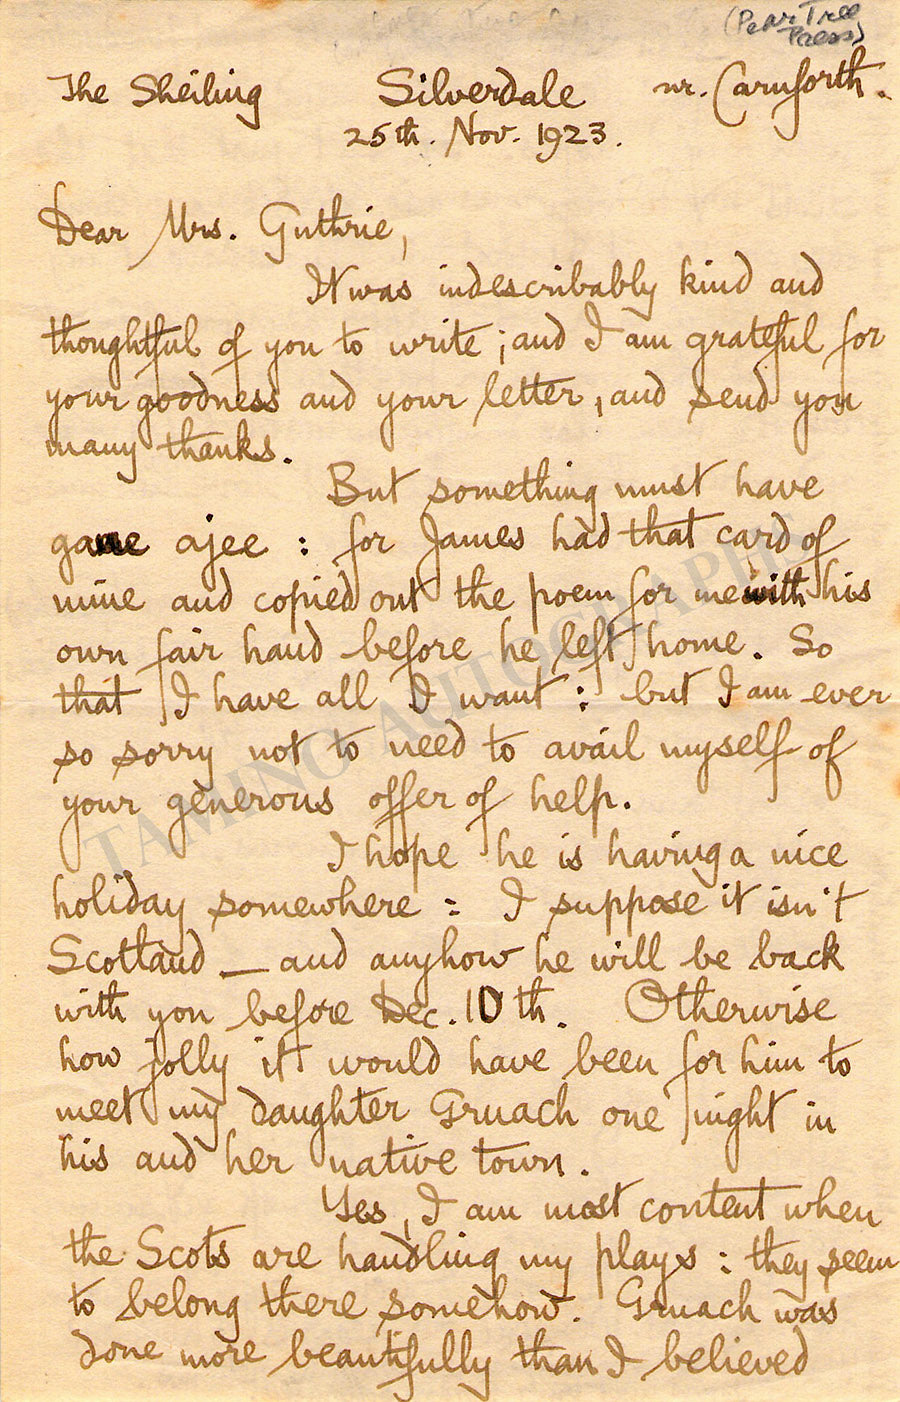 (Pear Tree
Press)
The Sheiling Silverdale nr. Carnforth.
25th. Nov. 1923.
Dear Mrs. Guthrie,
It was indescribably kind and
thoughtful of you to write; and I am grateful for
your goodness and your letter, and send you
many thanks.
But something must have
gane ajee : for James had that card of
mine and copied out the poem for me with his
own fair hand before he left home. So
that I have all I want : but I am ever
so sorry not to need to avail myself of
your generous offer of help.
I hope he is having a nice
holiday somewhere : I suppose it isn't
Scotland — and anyhow he will be back
with you before Dec. 10th. Otherwise
how jolly it would have been for him to
meet my daughter Gruach one night in
his and her native town.
Yes, I am most content when
the Scots are handling my plays : they seem
to belong there somehow. Gruach was
done more beautifully than I believed
TAMINO AUTOGRAPHS